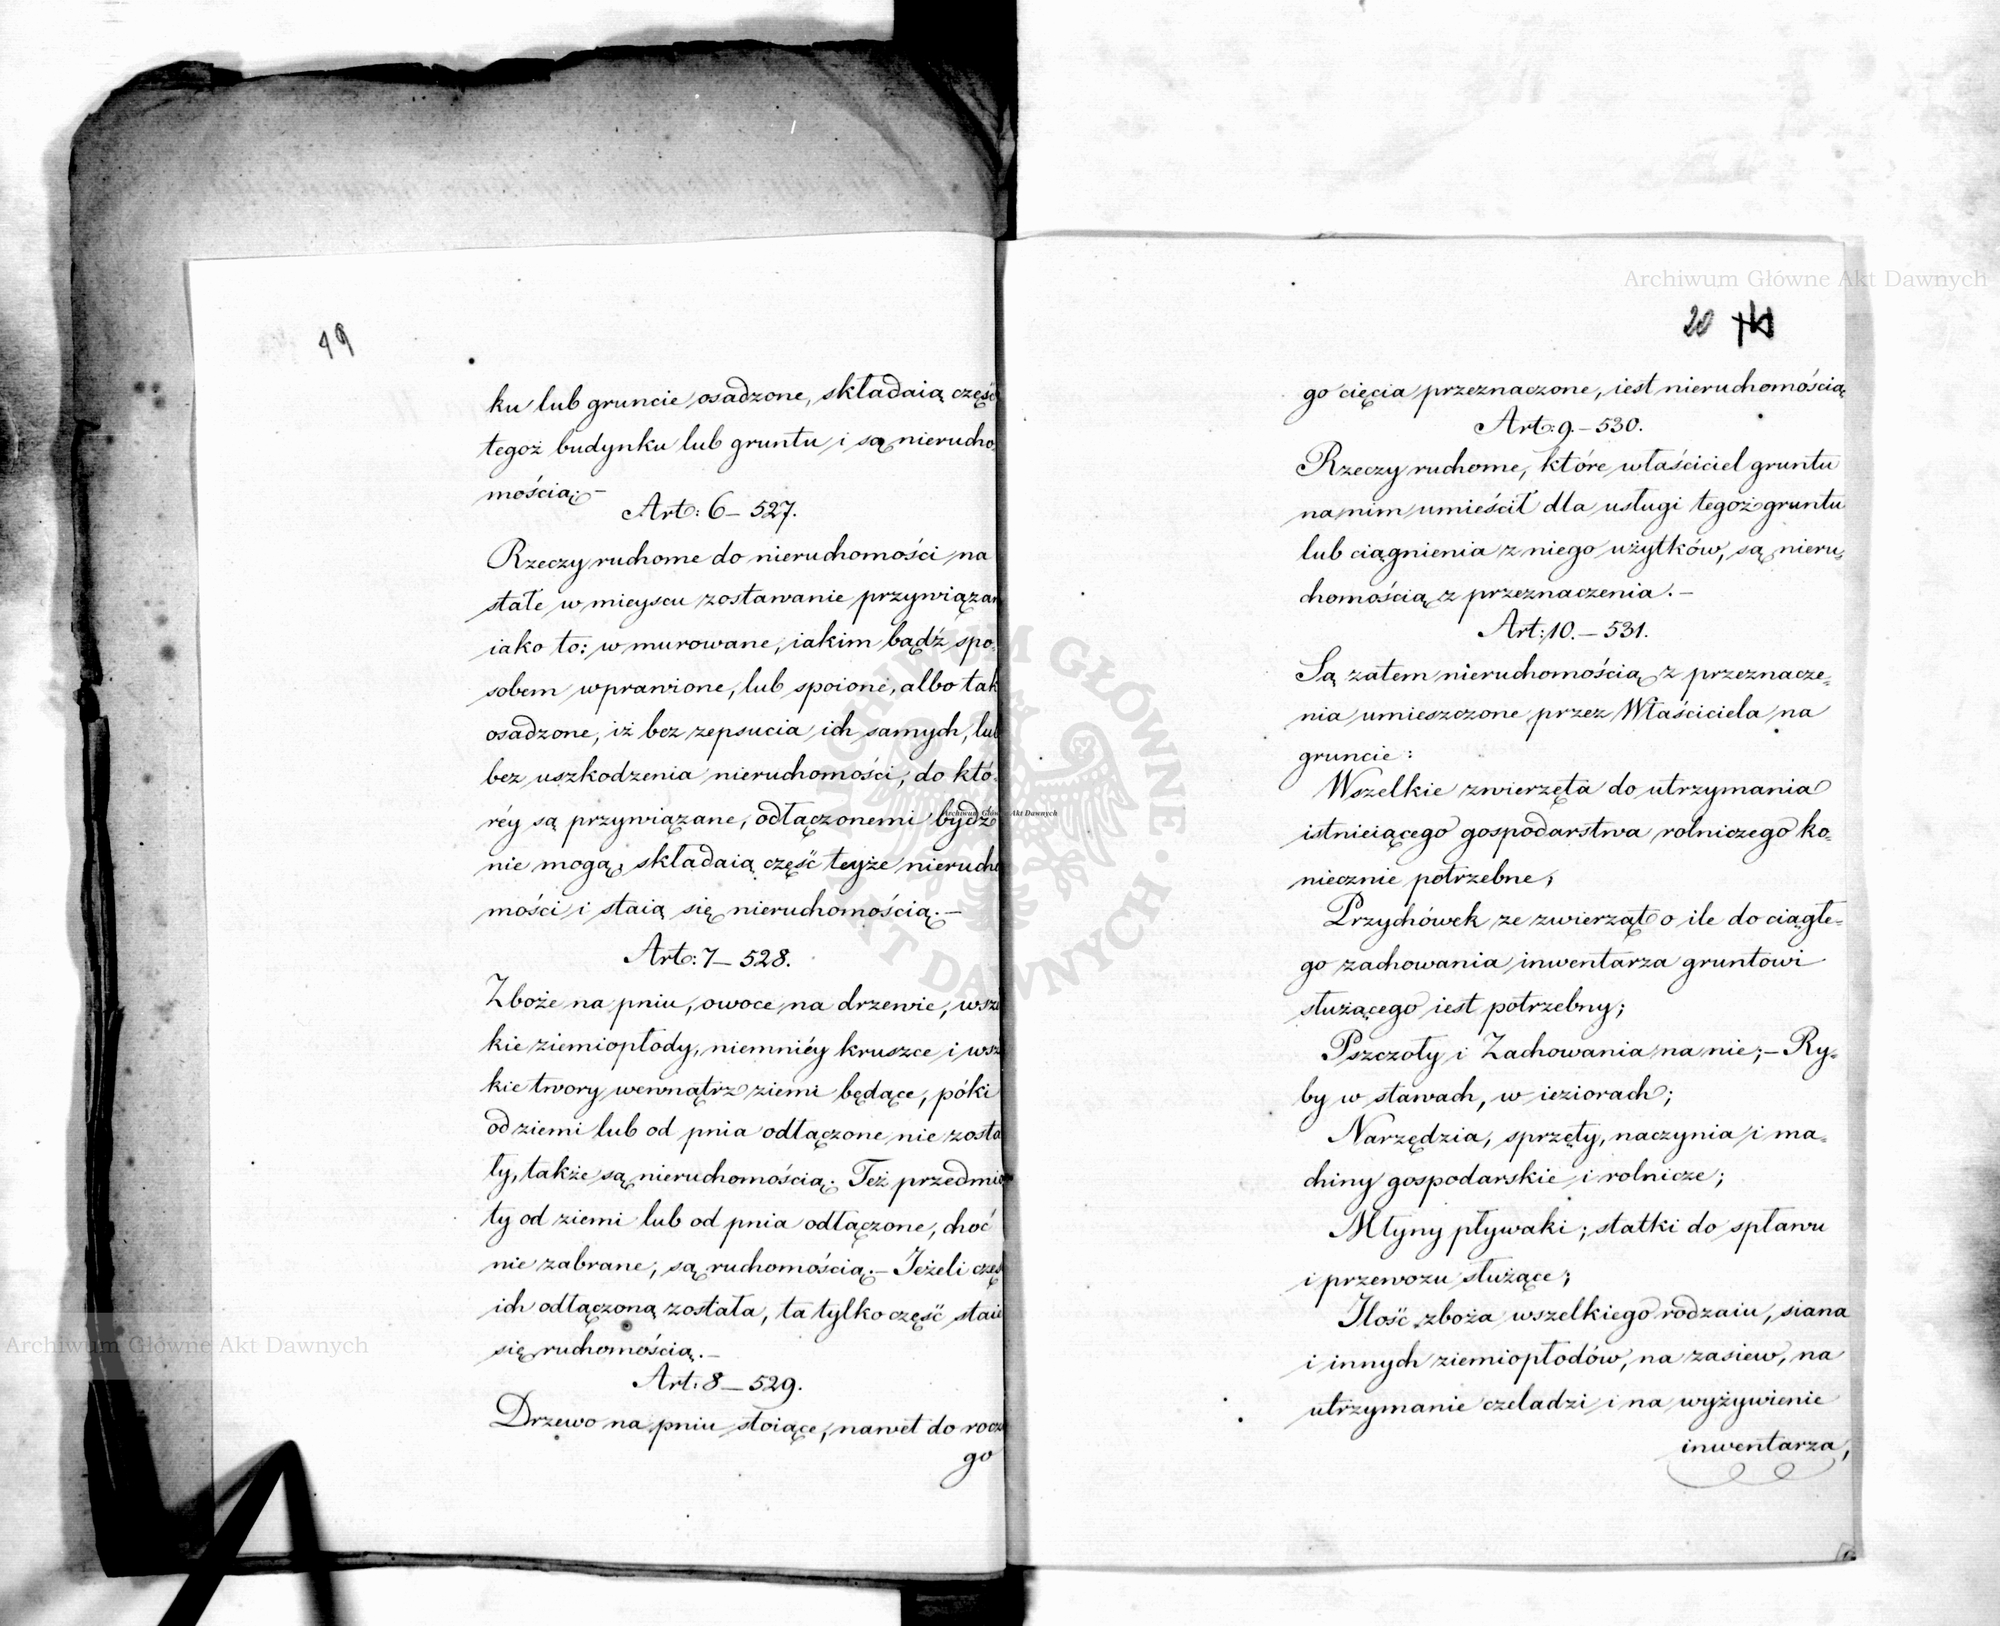 19
ku lub gruncie osadzone, składaią część
tegoż budynku lub gruntu i są nierucho
mością. –
Art: 6 – 527.
Rzeczy ruchome do nieruchomości na
stałe w mieyscu zostawanie przywiązan
iako to: w murowane, iakim bądź spo-
sobem wprawione, lub spoione, albo tak
osadzone, iż bez zepsucia ich samych, lub
bez uszkodzenia nieruchomości, do któ-
réy są przywiązane, odłączonemi bydź
nie mogą, składaią część teyże nierucho
mości i staią się nieruchomością. –
Art: 7 – 528.
Zboże na pniu, owoce na drzewie, wsze
kie ziemiopłody, niemniéy kruszce i wsz
kie twory wewnątrz ziemi będące, póki
od ziemi lub od pnia odłączone nie zosta
ły, także są nieruchomością. Też przedmio
ty od ziemi lub od pnia odłączone, choć
nie zabrane, są ruchomością. – Jeżeli częś
ich odłączoną została, ta tylko część staie
się ruchomością. –
Art: 8 – 529.
Drzewo na pniu stoiące, nawet do roczn
go
20
go cięcia przeznaczone, iest nieruchomością
Art: 9. – 530.
Rzeczy ruchome, które właściciel gruntu
na nim umieścił dla usługi tegoż gruntu
lub ciągnienia z niego użytków, są nieru-
chomością z przeznaczenia. –
Art: 10. – 531.
Są zatem nieruchomością z przeznacze-
nia umieszczone przez Właściciela na
gruncie :
Wszelkie zwierzęta do utrzymania
istnieiącego gospodarstwa rolniczego ko-
niecznie potrzebne;
Przychówek ze zwierząt o ile do ciągłe-
go zachowania inwentarza gruntowi
służącego iest potrzebny;
Pszczoły i Zachowania na nie; – Ry-
by w stawach, w ieziorach;
Narzędzia, sprzęty, naczynia i ma-
chiny gospodarskie i rolnicze;
Młyny pływaki; statki do spławu
i przewozu służące;
Ilość zboża wszelkiego rodzaiu, siana
i innych ziemiopłodów, na zasiew, na
utrzymanie czeladzi i na wyżywienie
inwentarza,
Archiwum Główne Akt Dawnych
Archiwum Główne Akt Dawnych
Archiwum Główne Akt Dawnych
ARCHIWUM GŁÓWNE AKT DAWNYCH